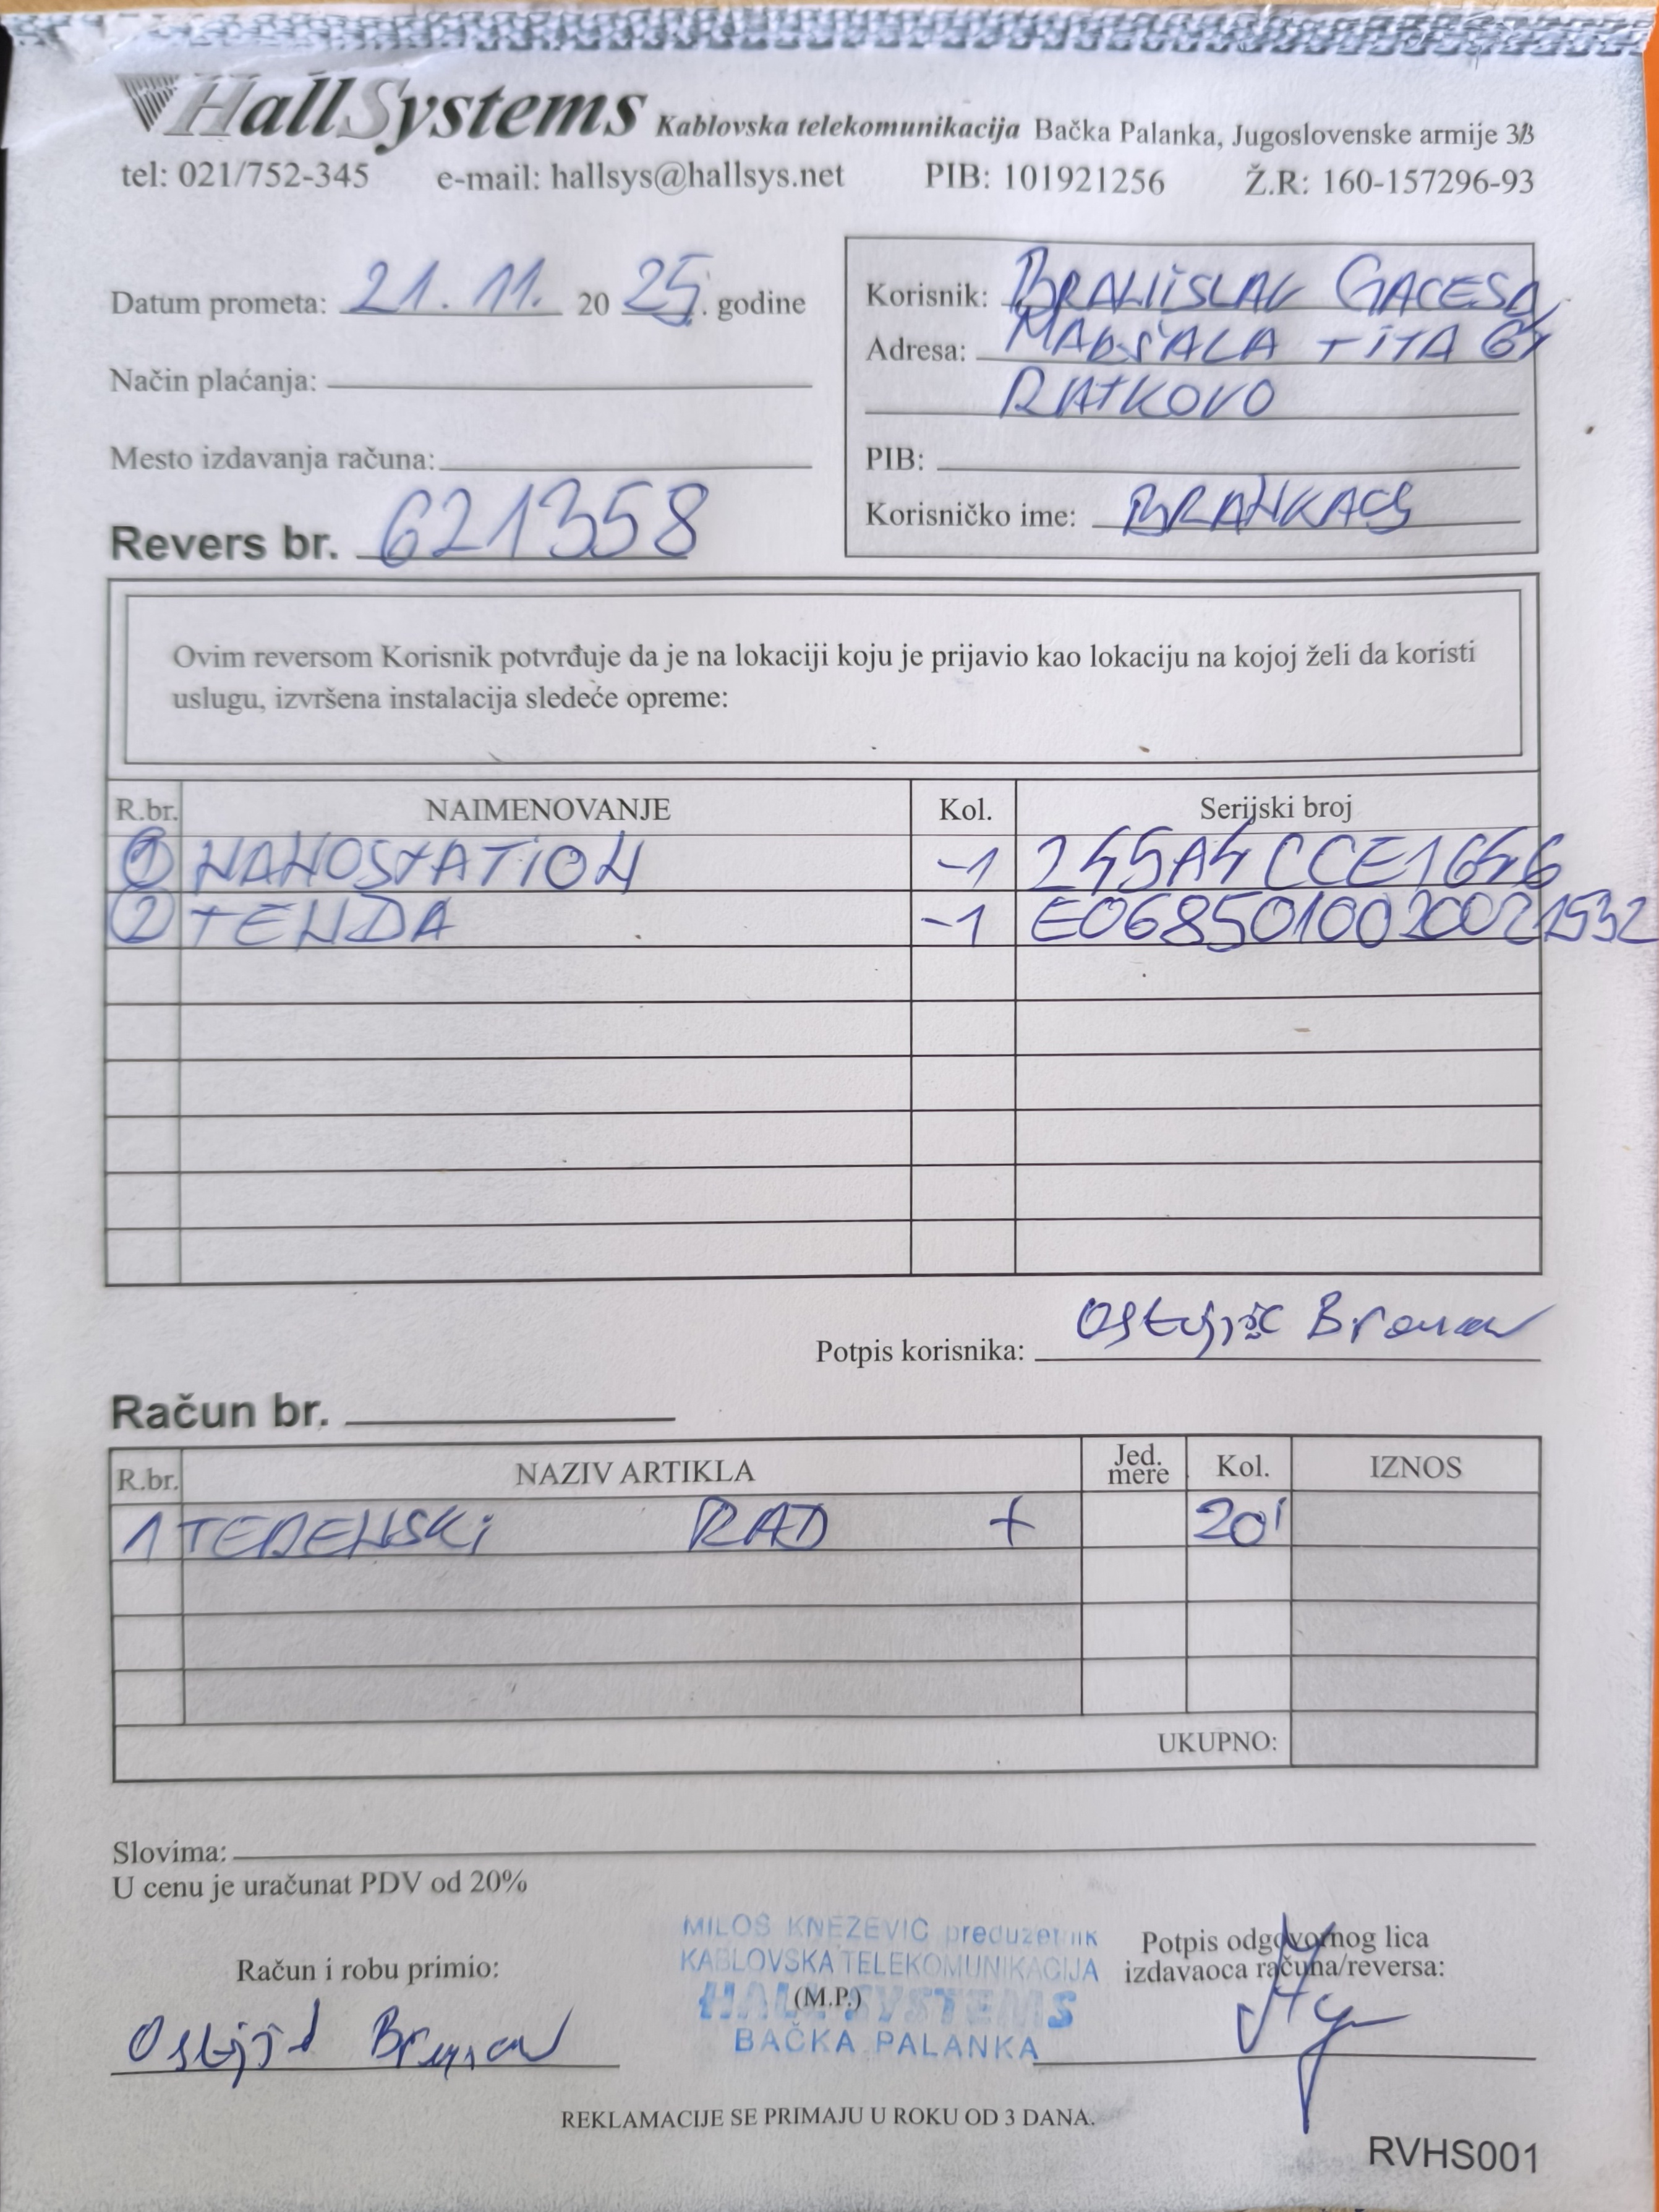 HallSystems Kablovska telekomunikacija Bačka Palanka, Jugoslovenske armije 3B
tel: 021/752-345 e-mail: hallsys@hallsys.net PIB: 101921256 Ž.R: 160-157296-93
Datum prometa: 21. 11. 20 25. godine
Način plaćanja:
Mesto izdavanja računa:
Revers br. 621358
Korisnik: BRANISLAV GACESA
Adresa: MARŠALA TITA 61
RATKOVO
PIB:
Korisničko ime: BRANKAGS
Ovim reversom Korisnik potvrđuje da je na lokaciji koju je prijavio kao lokaciju na kojoj želi da koristi
uslugu, izvršena instalacija sledeće opreme:
R.br. NAIMENOVANJE Kol. Serijski broj
1 NANOSTATION -1 245A4CCE1646
2 TENDA -1 E0685010020021532
Potpis korisnika:
Račun br.
R.br. NAZIV ARTIKLA Jed. mere Kol. IZNOS
1 TERENSKI RAD + 20'
UKUPNO:
Slovima:
U cenu je uračunat PDV od 20%
MILOŠ KNEŽEVIĆ preduzetnik
KABLOVSKA TELEKOMUNIKACIJA
HALL SYSTEMS
BAČKA PALANKA
Račun i robu primio:
(M.P.)
Potpis odgovornog lica
izdavaoca računa/reversa:
REKLAMACIJE SE PRIMAJU U ROKU OD 3 DANA.
RVHS001